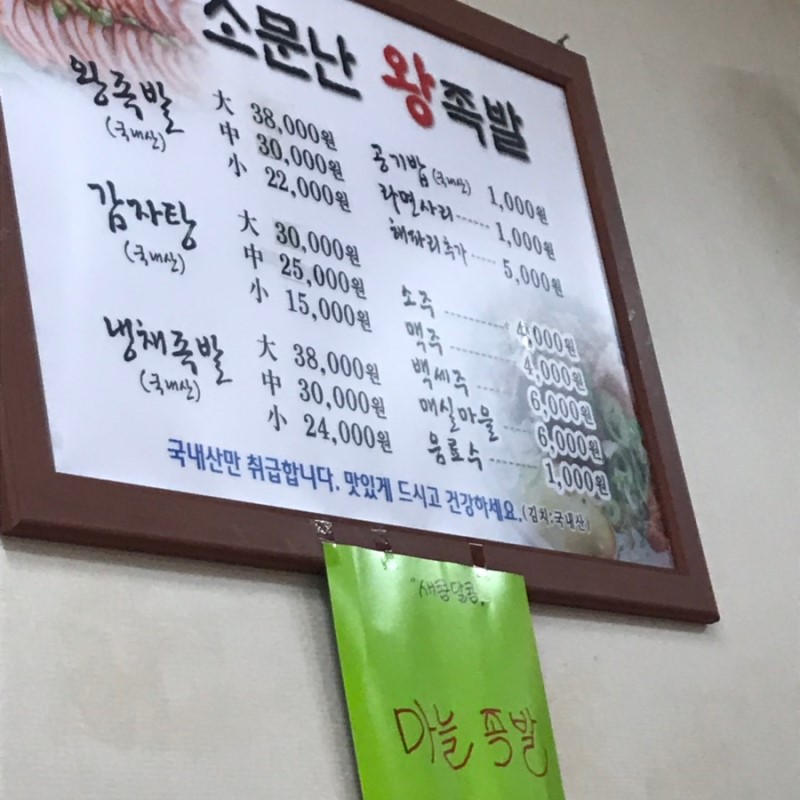 소문난 왕족발
왕족발 大 38,000원
(국내산) 中 30,000원
小 22,000원
감자탕 大 30,000원
(국내산) 中 25,000원
小 15,000원
냉채족발 大 38,000원
(국내산) 中 30,000원
小 24,000원
공기밥(국내산) 1,000원
라면사리------ 1,000원
해파리추가---- 5,000원
소주 ---------- 4,000원
맥주 ---------- 4,000원
백세주 ------ 6,000원
매실마을 ---- 6,000원
음료수 ------ 1,000원
국내산만 취급합니다. 맛있게 드시고 건강하세요.(김치:국내산)
"새콤달콤,
마늘 족발